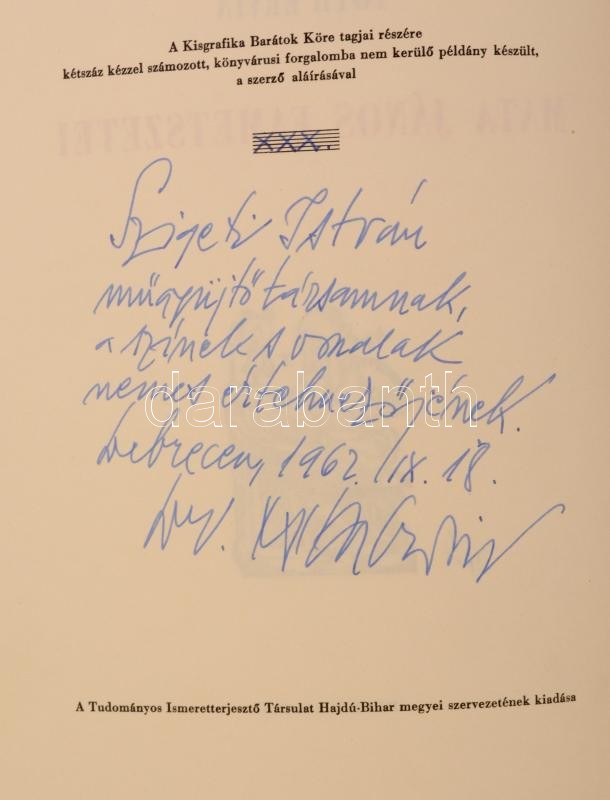 A Kisgrafika Barátok Köre tagjai részére
kétszáz kézzel számozott, könyvárusi forgalomba nem kerülő példány készült,
a szerző aláírásával
XXX.
Szigeti István
műgyűjtőtársamnak,
a színek s vonalak
nemes
darabanth
Debrecen, 1962. IX. 18.
A Tudományos Ismeretterjesztő Társulat Hajdú-Bihar megyei szervezetének kiadása